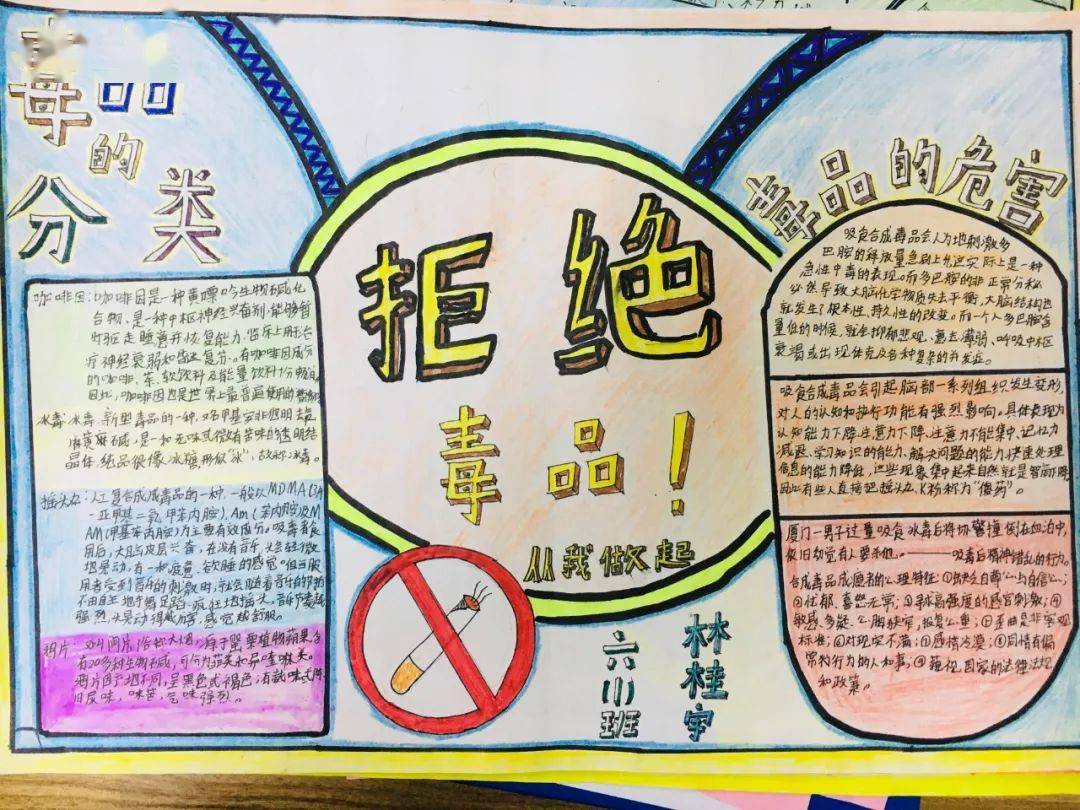 毒品
的
分类
咖啡因：咖啡因是一种黄嘌呤生物碱化
合物，是一种中枢神经兴奋剂，能够暂
时驱走睡意并恢复能力，临床上用于治
疗神经衰弱和昏迷复苏。有咖啡因成分
的咖啡、茶、软饮料及能量饮料十分畅销。
因此，咖啡因也是世界上最普遍使用的
冰毒：冰毒，新型毒品的一种，
麻黄碱，是一种无味或微有苦味的透明结
晶体，纯品很像冰糖形似“冰”，故称冰毒。
摇头丸：人工合成成毒品的一种，一般以MDMA
用后，大脑皮层兴奋，在没有音乐，头会轻微
地晃动，有一种疲惫、欲睡的感觉。但当服
用者受到音乐的刺激时，就会随着音乐
不由自主地手舞足蹈，疯狂地摇头，音乐节奏越
强烈，头晃动得越厉害，感觉越舒服。
鸦片：又叫阿片，俗称大烟，源于罂粟植物蒴果，含
有20多种生物碱，可分为菲类和异喹啉类。
鸦片因产地不同，呈黑色或褐色；有氨味或陈
旧尿味，味苦，气味强烈。
拒绝
毒品！
从我做起
六(1)班
林桂宇
毒品的危害
吸食合成毒品会人为地刺激多
巴胺的释放量急剧上升，这实际上是一种
急性中毒的表现。而多巴胺的非正常分泌
必然导致大脑化学物质失去平衡，大脑结构也
就发生了根本性、持久性的改变。而一个人多巴胺含
量低的时候，就会抑郁悲观、意志薄弱、呼吸中枢
衰竭或出现休克及各种复杂的并发症。
吸食合成毒品会引起脑部一系列组织发生变形，
对人的认知和执行功能有强烈影响。具体表现为
认知能力下降，注意力下降、注意力不能集中、记忆力
减退、学习知识的能力、解决问题的能力、快速处理
信息的能力降低，这些现象集中起来自然就是智商下降，
因此有些人直接把摇头丸、K粉称为“傻药”。
厦门一男子过量吸食冰毒后将协警撞倒在血泊中，
依旧幻觉有人要杀他。———吸毒后精神错乱的行为。
合成毒品成瘾者的心理特征：①缺乏自尊心与自信心；
②忧郁、喜怒无常；③寻求高强度的感官刺激；④
敏感、多疑、心胸狭窄，报复心重；⑤歪曲是非客观
标准；⑥对现实不满；⑦感情冷漠；⑧同情有偏
常的行为的人和事；⑨藐视国家的法律法规
和政策。